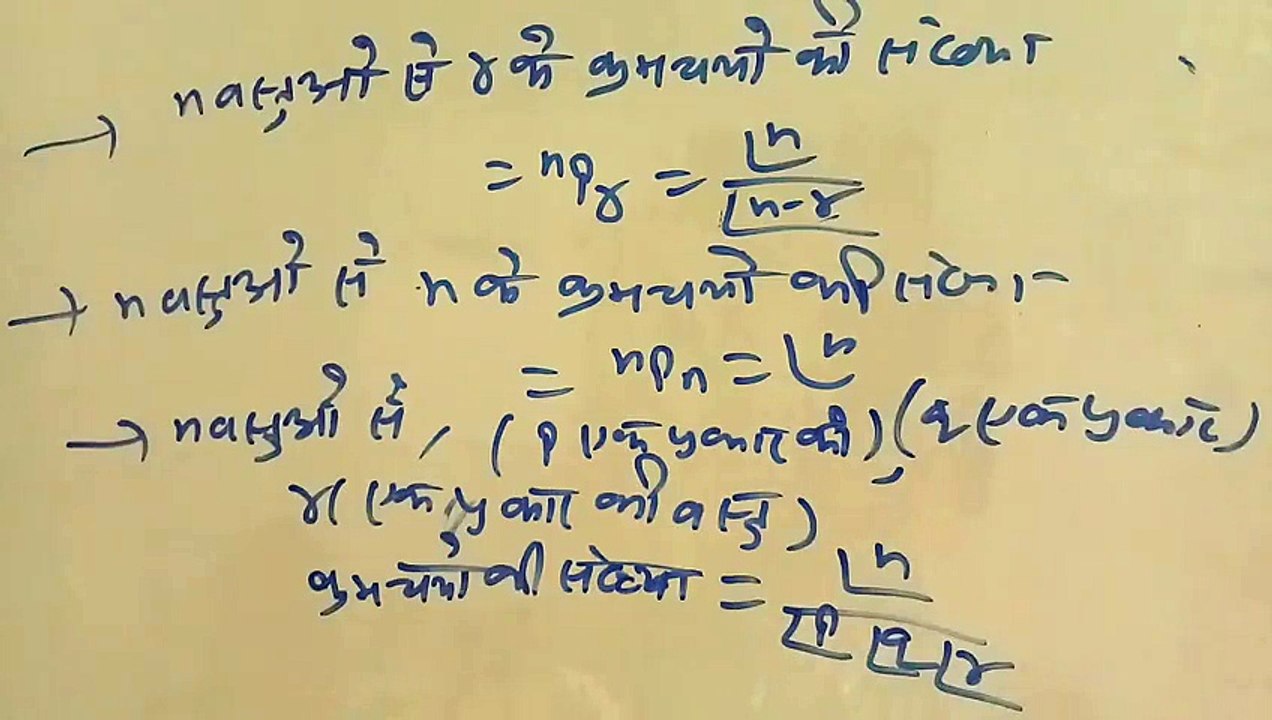 → n वस्तुओं से r के क्रमचयों की संख्या
= ⁿPᵣ = ∟n / ∟n-r
→ n वस्तुओं से n के क्रमचयों की संख्या
= ⁿPₙ = ∟n
→ n वस्तुओं से, (P एक प्रकार की), (q एक प्रकार)
r (एक प्रकार की वस्तु)
क्रमचयों की संख्या = ∟n / ∟P ∟q ∟r